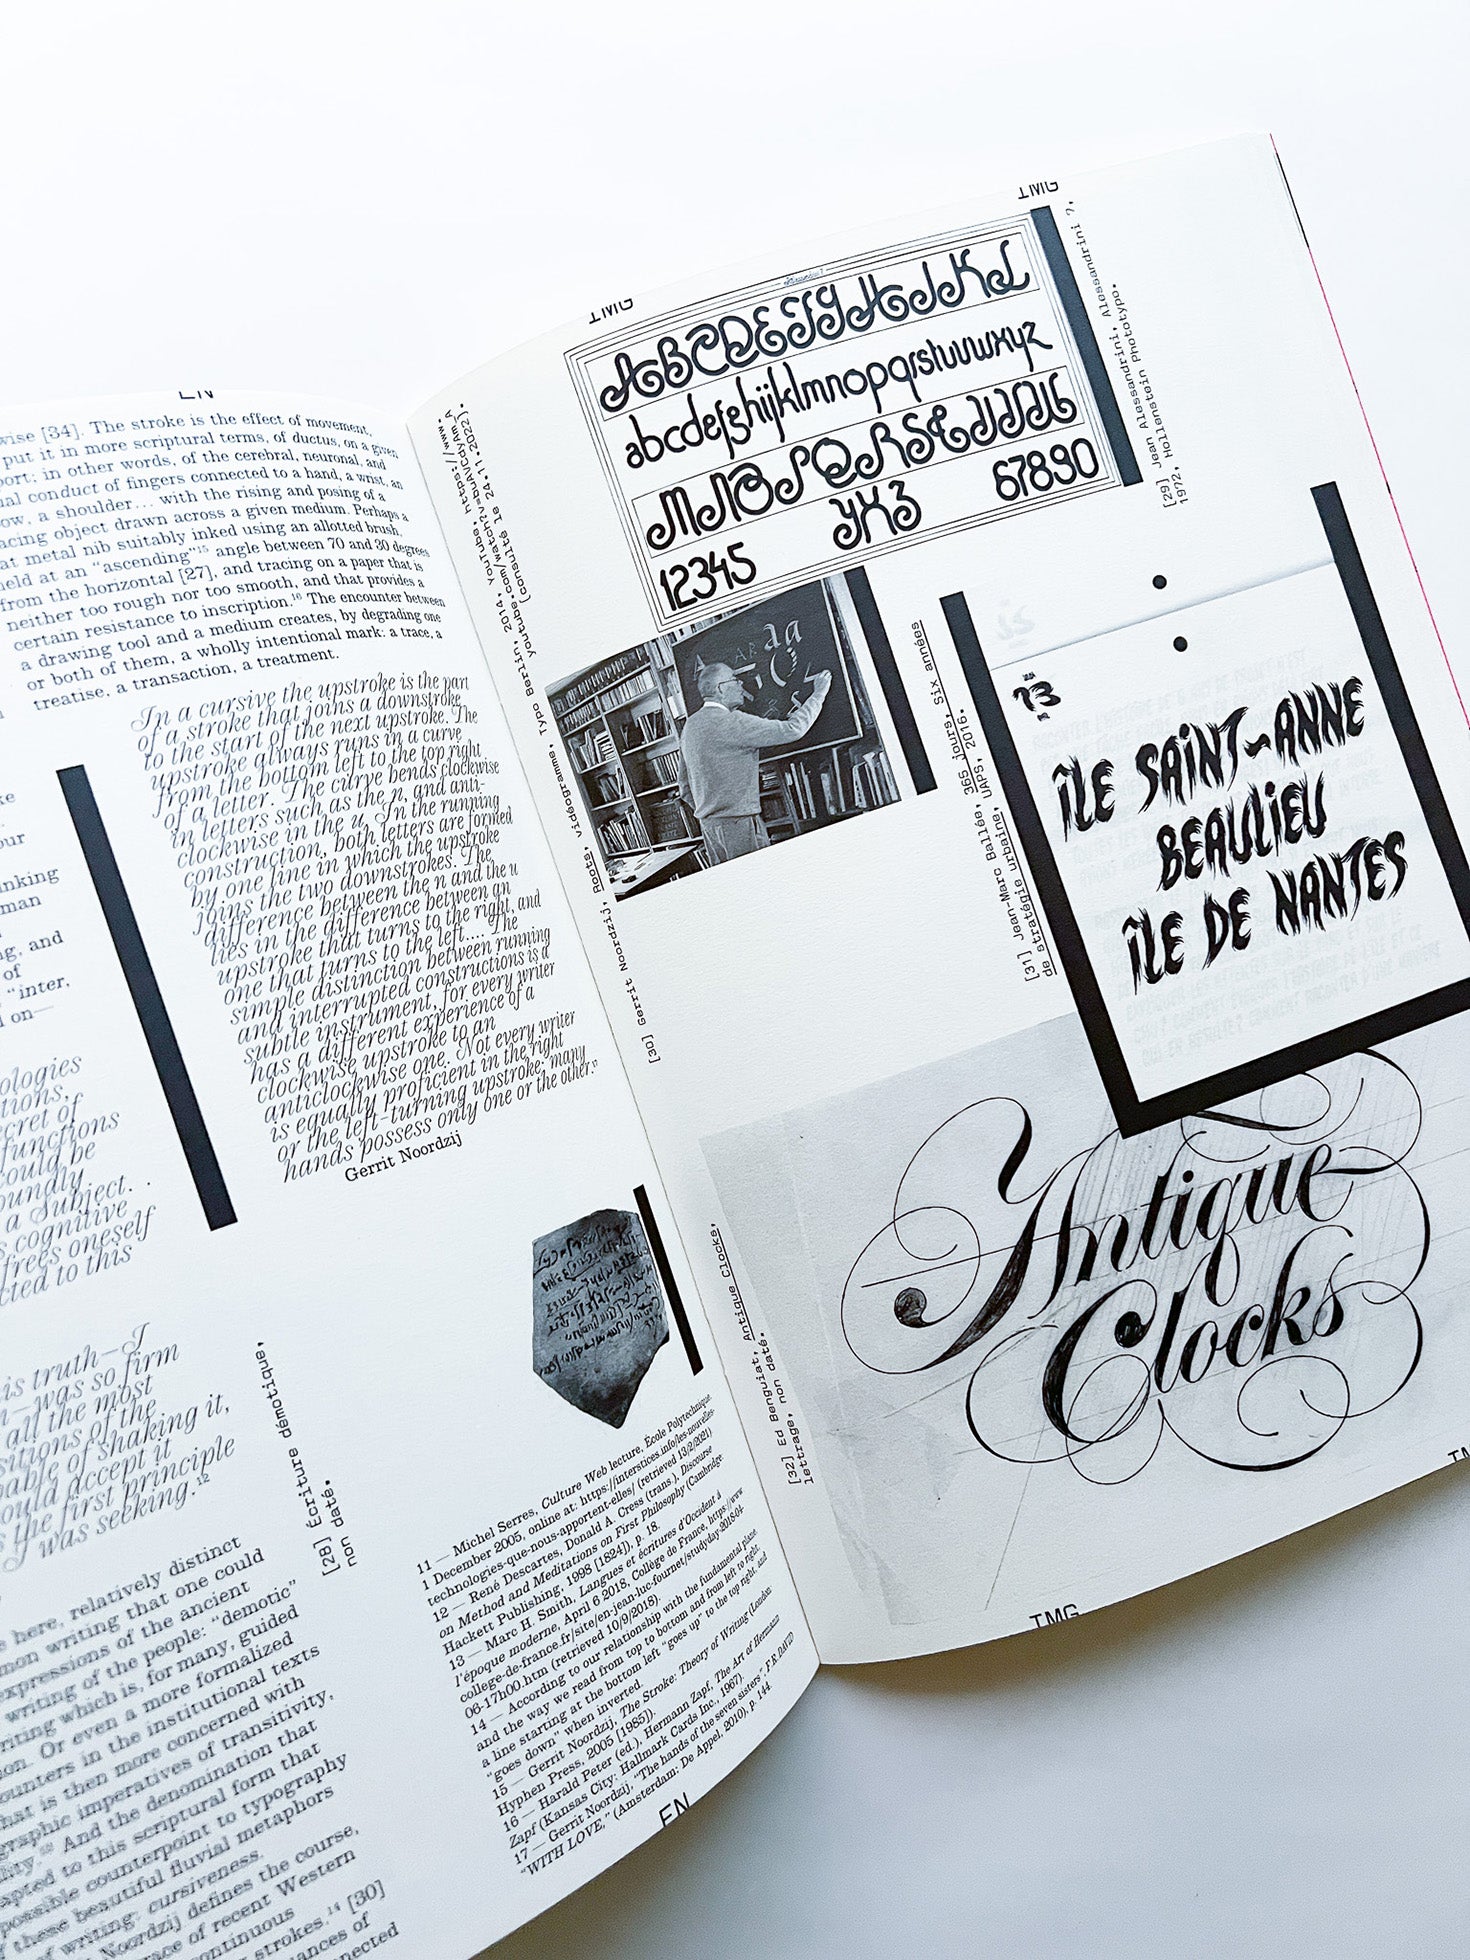 EN
wise [34]. The stroke is the effect of movement,
put it in more scriptural terms, of ductus, on a given
port: in other words, of the cerebral, neuronal, and
ial conduct of fingers connected to a hand, a wrist, an
ow, a shoulder… with the rising and posing of a
acing object drawn across a given medium. Perhaps a
at metal nib suitably inked using an allotted brush,
held at an “ascending”¹⁵ angle between 70 and 30 degrees
from the horizontal [27], and tracing on a paper that is
neither too rough nor too smooth, and that provides a
certain resistance to inscription.¹⁶ The encounter between
a drawing tool and a medium creates, by degrading one
or both of them, a wholly intentional mark: a trace, a
treatise, a transaction, a treatment.
In a cursive the upstroke is the part
of a stroke that joins a downstroke
to the start of the next upstroke. The
upstroke always runs in a curve
from the bottom left to the top right
of a letter. The curve bends clockwise
in letters such as the n, and anti-
clockwise in the u. In the running
construction, both letters are formed
by one line in which the upstroke
joins the two downstrokes. The
difference between the n and the u
lies in the difference between an
upstroke that turns to the right, and
one that turns to the left.... The
simple distinction between running
and interrupted constructions is a
subtle instrument, for every writer
has a different experience of a
clockwise upstroke to an
anticlockwise one. Not every writer
is equally proficient in the right
or the left-turning upstroke; many
hands possess only one or the other.”
Gerrit Noordzij
our
inking
man
ng, and
of
“inter,
d on—
ologies
tions,
ecret of
functions
could be
oundly
a Subject. .
s cognitive
frees oneself
cted to this
is truth—I
n—was so firm
all the most
sitions of the
pable of shaking it,
ould accept it
s the first principle
I was seeking.¹²
[28] Écriture démotique,
non daté.
e here, relatively distinct
mon writing that one could
expressions of the ancient
writing of the people: “demotic”
riting which is, for many, guided
on. Or even a more formalized
ounters in the institutional texts
hat is then more concerned with
graphic imperatives of transitivity,
lity.¹³ And the denomination that
apted to this scriptural form that
possible counterpoint to typography
f these beautiful fluvial metaphors
of writing: cursiveness.
Noordzij defines the course,
race of recent Western
continuous
strokes.¹⁴ [30]
ances of
nnected
11 — Michel Serres, Culture Web lecture, École Polytechnique,
1 December 2005, online at: https://interstices.info/les-nouvelles-
technologies-que-nous-apportent-elles/ (retrieved 13/2/2021)
12 — René Descartes, Donald A. Cress (trans.), Discourse
on Method and Meditations on First Philosophy (Cambridge:
Hackett Publishing, 1998 [1824]), p. 18.
13 — Marc H. Smith, Langues et écritures d’Occident à
l’époque moderne, April 6 2018, Collège de France, https://www.
college-de-france.fr/site/en-jean-luc-fournet/studyday-2018-04-
06-17h00.htm (retrieved 10/9/2018).
14 — According to our relationship with the fundamental plane
and the way we read from top to bottom and from left to right,
a line starting at the bottom left “goes up” to the top right, and
“goes down” when inverted.
15 — Gerrit Noordzij, The Stroke: Theory of Writing (London:
Hyphen Press, 2005 [1985]).
16 — Harald Peter (ed.), Hermann Zapf, The Art of Hermann
Zapf (Kansas City: Hallmark Cards Inc., 1967).
17 — Gerrit Noordzij, “The hands of the seven sisters”, F.R.DAVID
“WITH LOVE,” (Amsterdam: De Appel, 2010), p. 144.
EN
IMG
IMG
ABCDEFGHIJKL
abcdefghijklmnopqrstuvwxyz
MNOPQRSTUVW
YXZ
12345
67890
[29] Jean Alessandrini, Alessandrini 7,
1972, Hollenstein Phototypo.
[30] Gerrit Noordzij, Roots, vidéogramme, Typo Berlin, 2014, YouTube, https://www.
youtube.com/watch?v=buAVCdyAm_A
(consulté le 24.11.2022).
[31] Jean-Marc Ballée, 365 jours, six années
de stratégie urbaine, UAPS, 2016.
13
ÎLE SAINT-ANNE
BEAULIEU
ÎLE DE NANTES
[32] Ed Benguiat, Antique Clocks,
lettrage, non daté.
Antique
Clocks
IMG